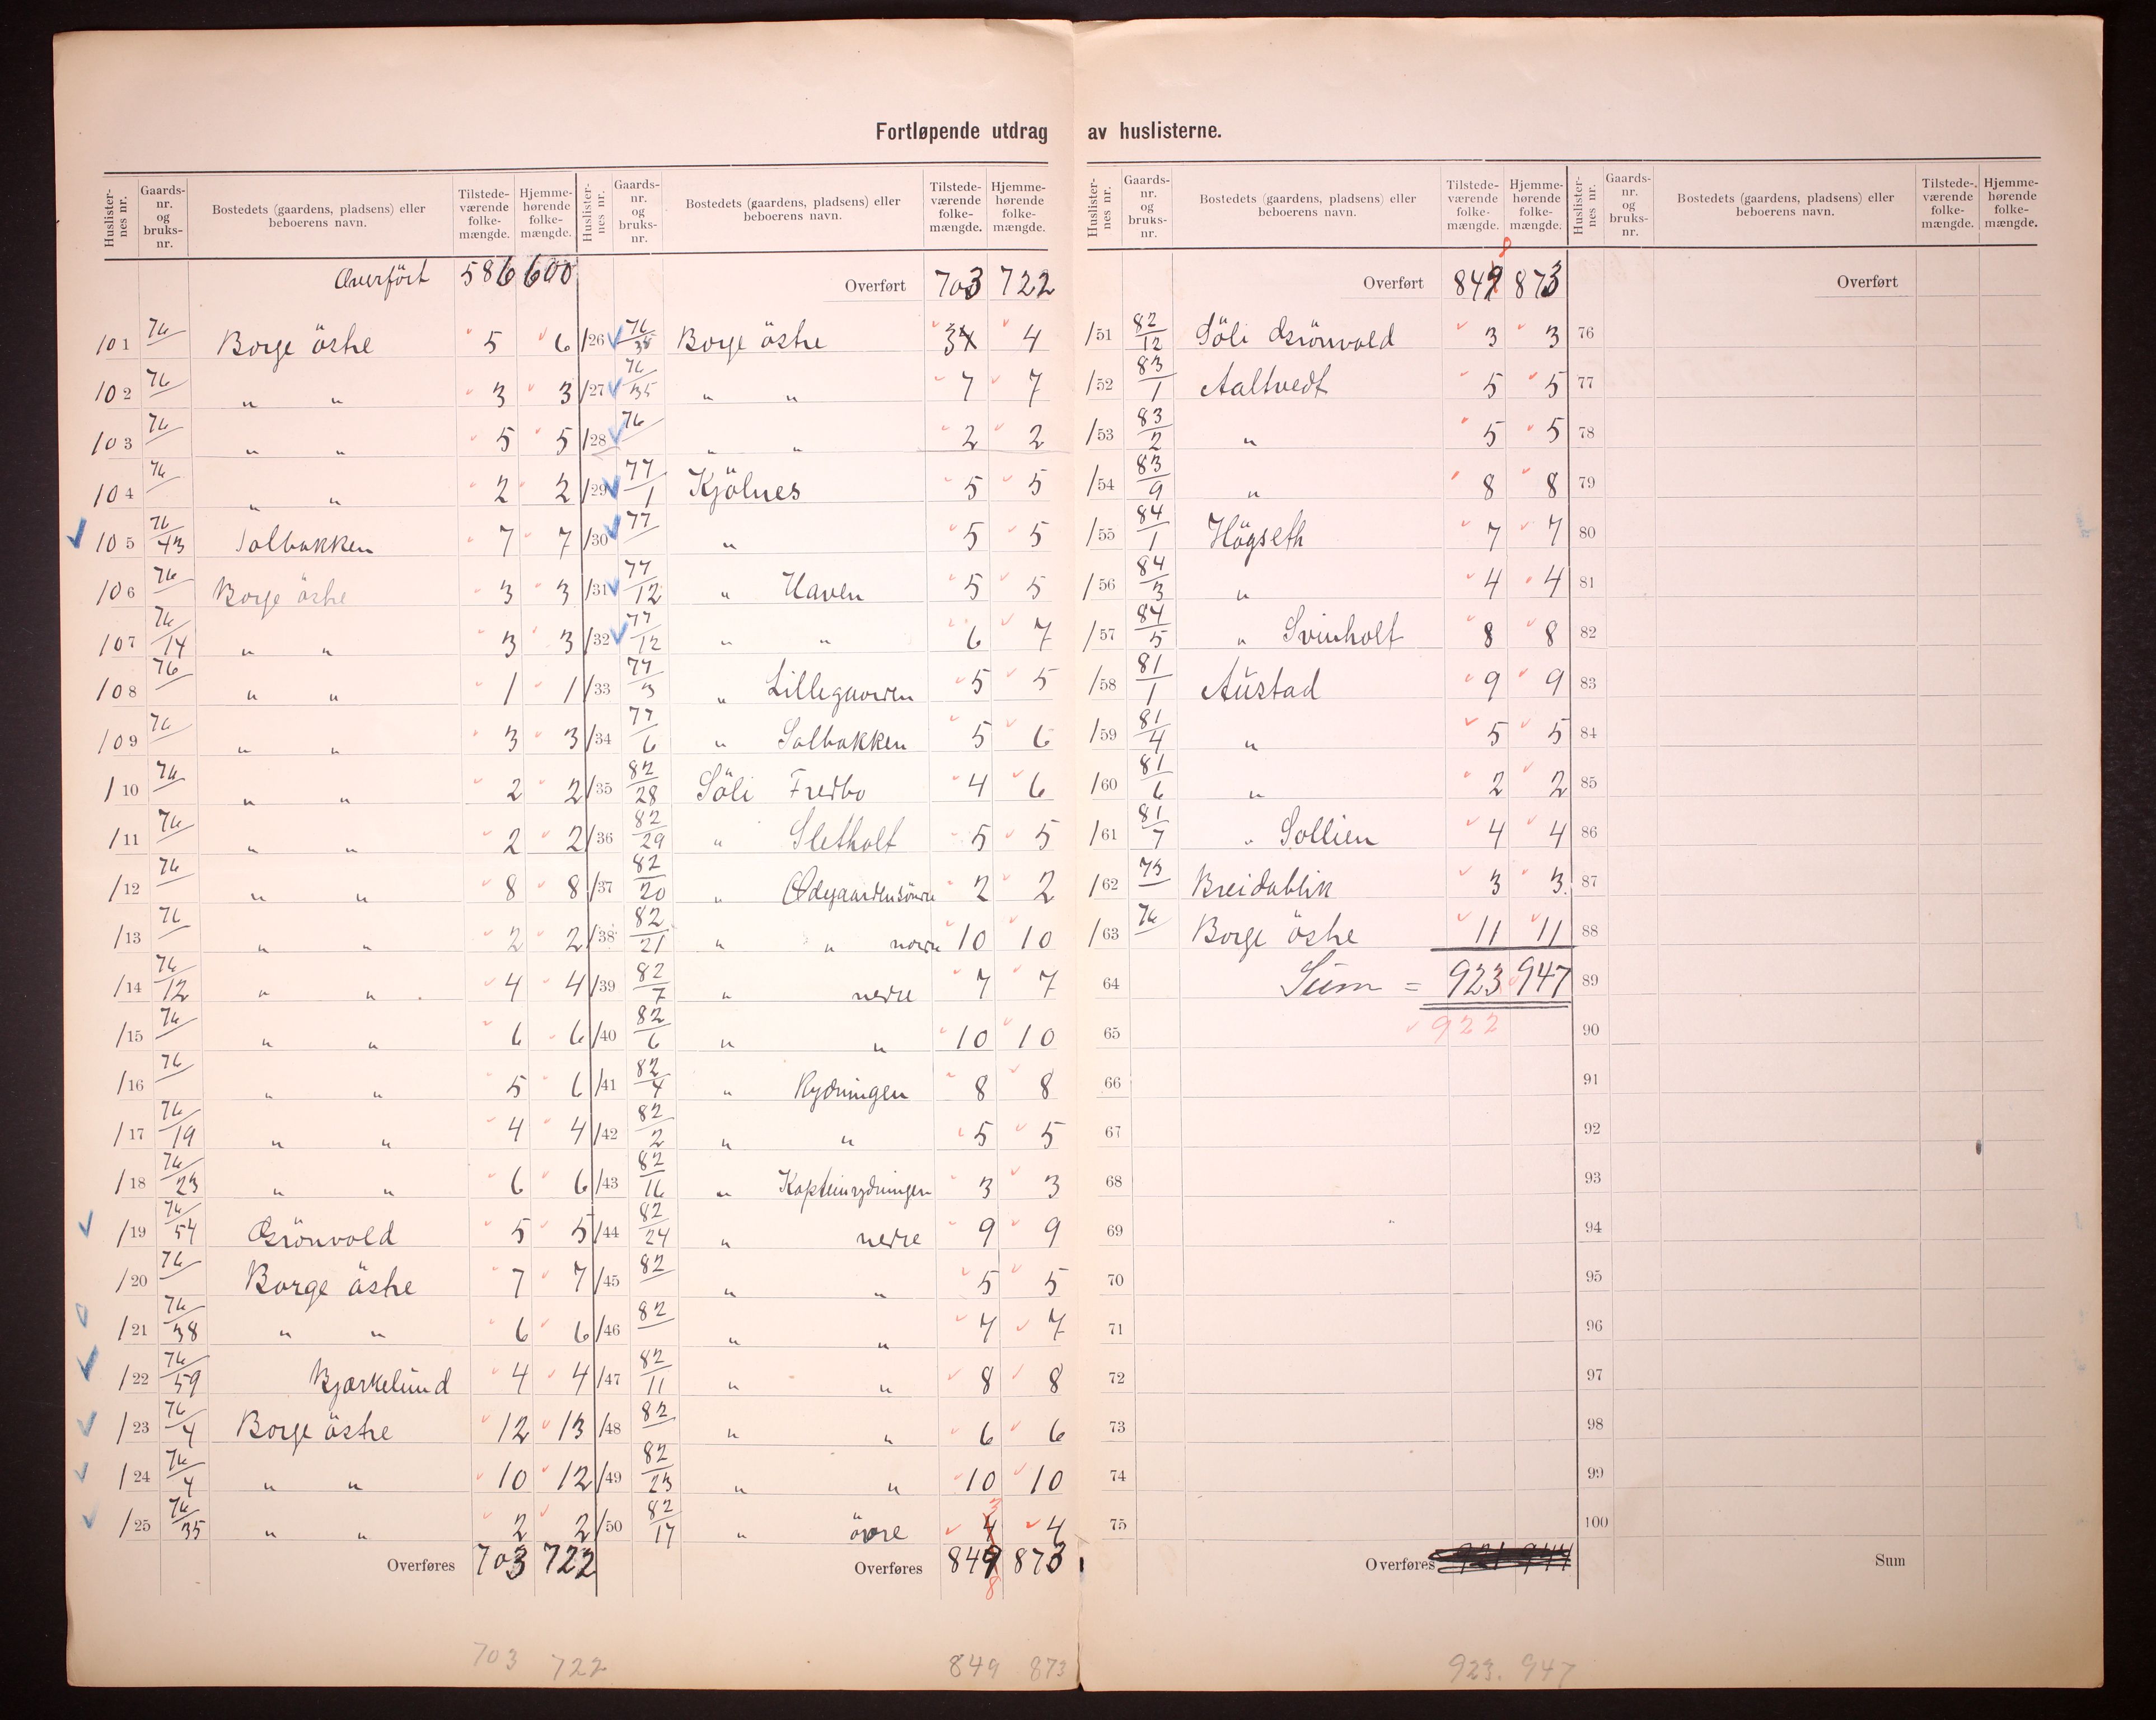 Fortløpende utdrag av huslisterne.
Huslisternes nr. Gaardsnr. og bruksnr. Bostedets (gaardens, pladsens) eller beboerens navn. Tilstedeværende folkemængde. Hjemmehørende folkemængde.
Overført 586 600
101 76 Borge östre 5 6
102 76 " " 3 3
103 76 " " 5 5
104 76 " " 2 2
105 76/43 Solbakken 7 7
106 76 Borge östre 3 3
107 76/14 " " 3 3
108 76 " " 1 1
109 76 " " 3 3
110 76 " " 2 2
111 76 " " 2 2
112 76 " " 8 8
113 76 " " 2 2
114 76/12 " " 4 4
115 76 " " 6 6
116 76 " " 5 6
117 76/19 " " 4 4
118 76/23 " " 6 6
119 76/54 Grönvold 5 5
120 76 Borge östre 7 7
121 76/38 " " 6 6
122 76/59 Bjørkelund 4 4
123 76/4 Borge östre 12 13
124 76/4 " " 10 12
125 76/35 " " 2 2
Overføres 703 722
703 722
Huslisternes nr. Gaardsnr. og bruksnr. Bostedets (gaardens, pladsens) eller beboerens navn. Tilstedeværende folkemængde. Hjemmehørende folkemængde.
Overført 703 722
126 76/35 Borge östre 3 4
127 76/35 " " 7 7
128 76 " " 2 2
129 77/1 Kjölnes 5 5
130 77 " 5 5
131 77/12 " Haven 5 5
132 77/12 " " 6 7
133 77/3 " Lillegaarden 5 5
134 77/6 " Solbakken 5 6
135 82/28 Söli Fredbo 4 6
136 82/29 " Sletholt 5 5
137 82/20 " Ødegaarden söndre 2 2
138 82/21 " " nordre 10 10
139 82/7 " nedre 7 7
140 82/6 " " 10 10
141 82/4 " Rydningen 8 8
142 82/2 " " 5 5
143 82/16 " Kapteinrydningen 3 3
144 82/24 " nedre 9 9
145 82 " " 5 5
146 82 " " 7 7
147 82/11 " " 8 8
148 82 " " 6 6
149 82/23 " " 10 10
150 82/17 " övre 4 3 4
Overføres 849 8 873
849 873
Huslisternes nr. Gaardsnr. og bruksnr. Bostedets (gaardens, pladsens) eller beboerens navn. Tilstedeværende folkemængde. Hjemmehørende folkemængde.
Overført 849 8 873
151 82/12 Söli Grönvold 3 3
152 83/1 Aaltvedt 5 5
153 83/2 " 5 5
154 83/9 " 8 8
155 84/1 Högseth 7 7
156 84/3 " 4 4
157 84/5 " Svinholt 8 8
158 81/1 Austad 9 9
159 81/4 " 5 5
160 81/6 " 2 2
161 81/7 " Sollien 4 4
162 75 Breidablik 3 3
163 76 Borge östre 11 11
64 Sum = 923 947
65 922
66
67
68
69
70
71
72
73
74
75
Overføres 921 944
923. 947
Huslisternes nr. Gaardsnr. og bruksnr. Bostedets (gaardens, pladsens) eller beboerens navn. Tilstedeværende folkemængde. Hjemmehørende folkemængde.
Overført
76
77
78
79
80
81
82
83
84
85
86
87
88
89
90
91
92
93
94
95
96
97
98
99
100
Sum